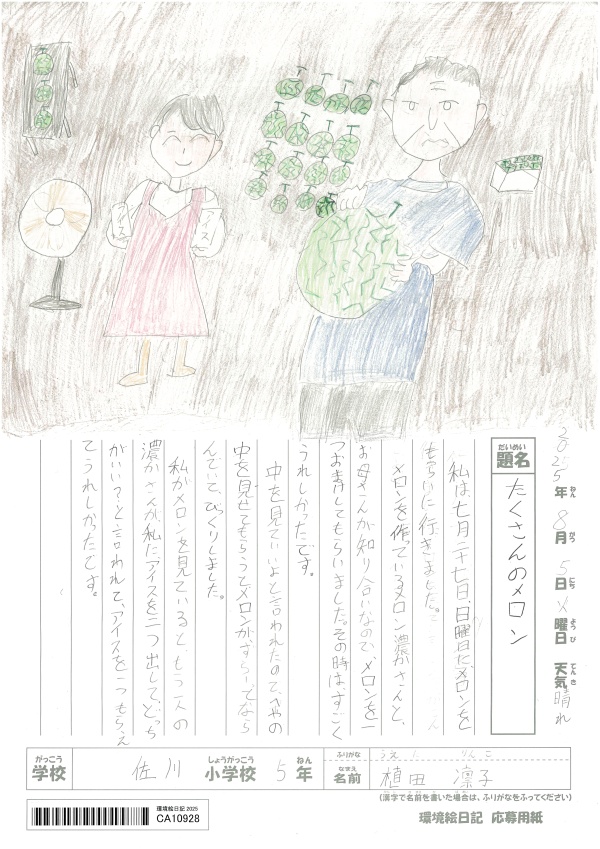 2025年 8月 5日 火曜日 天気 晴れ
ねん がつ にち ようび てんき
だいめい
題名
たくさんのメロン
私は七月二十七日、日曜日にメロンを
もらいに行きました。
メロンを作っているメロン濃かさんと、
お母さんが知り合いなので、メロンを一
つおまけしてもらいました。その時は、すごく
うれしかったです。
中を見ていいよと言われたので、へやの
中を見せてもらうとメロンがずらーっとなら
んでいて、びっくりしました。
私がメロンを見ていると、もう一人の
濃かさんが、私にアイスを二つ出して、どっち
がいい?と言われて、アイスを一つもらえ
てうれしかったです。
がっこう
学校
佐川
しょうがっこう
小学校
5
ねん
年
ふりがな
うえた りんこ
なまえ
名前
植田 凛子
(漢字で名前を書いた場合は、ふりがなをふってください)
環境絵日記 2025
CA10928
環境絵日記 応募用紙